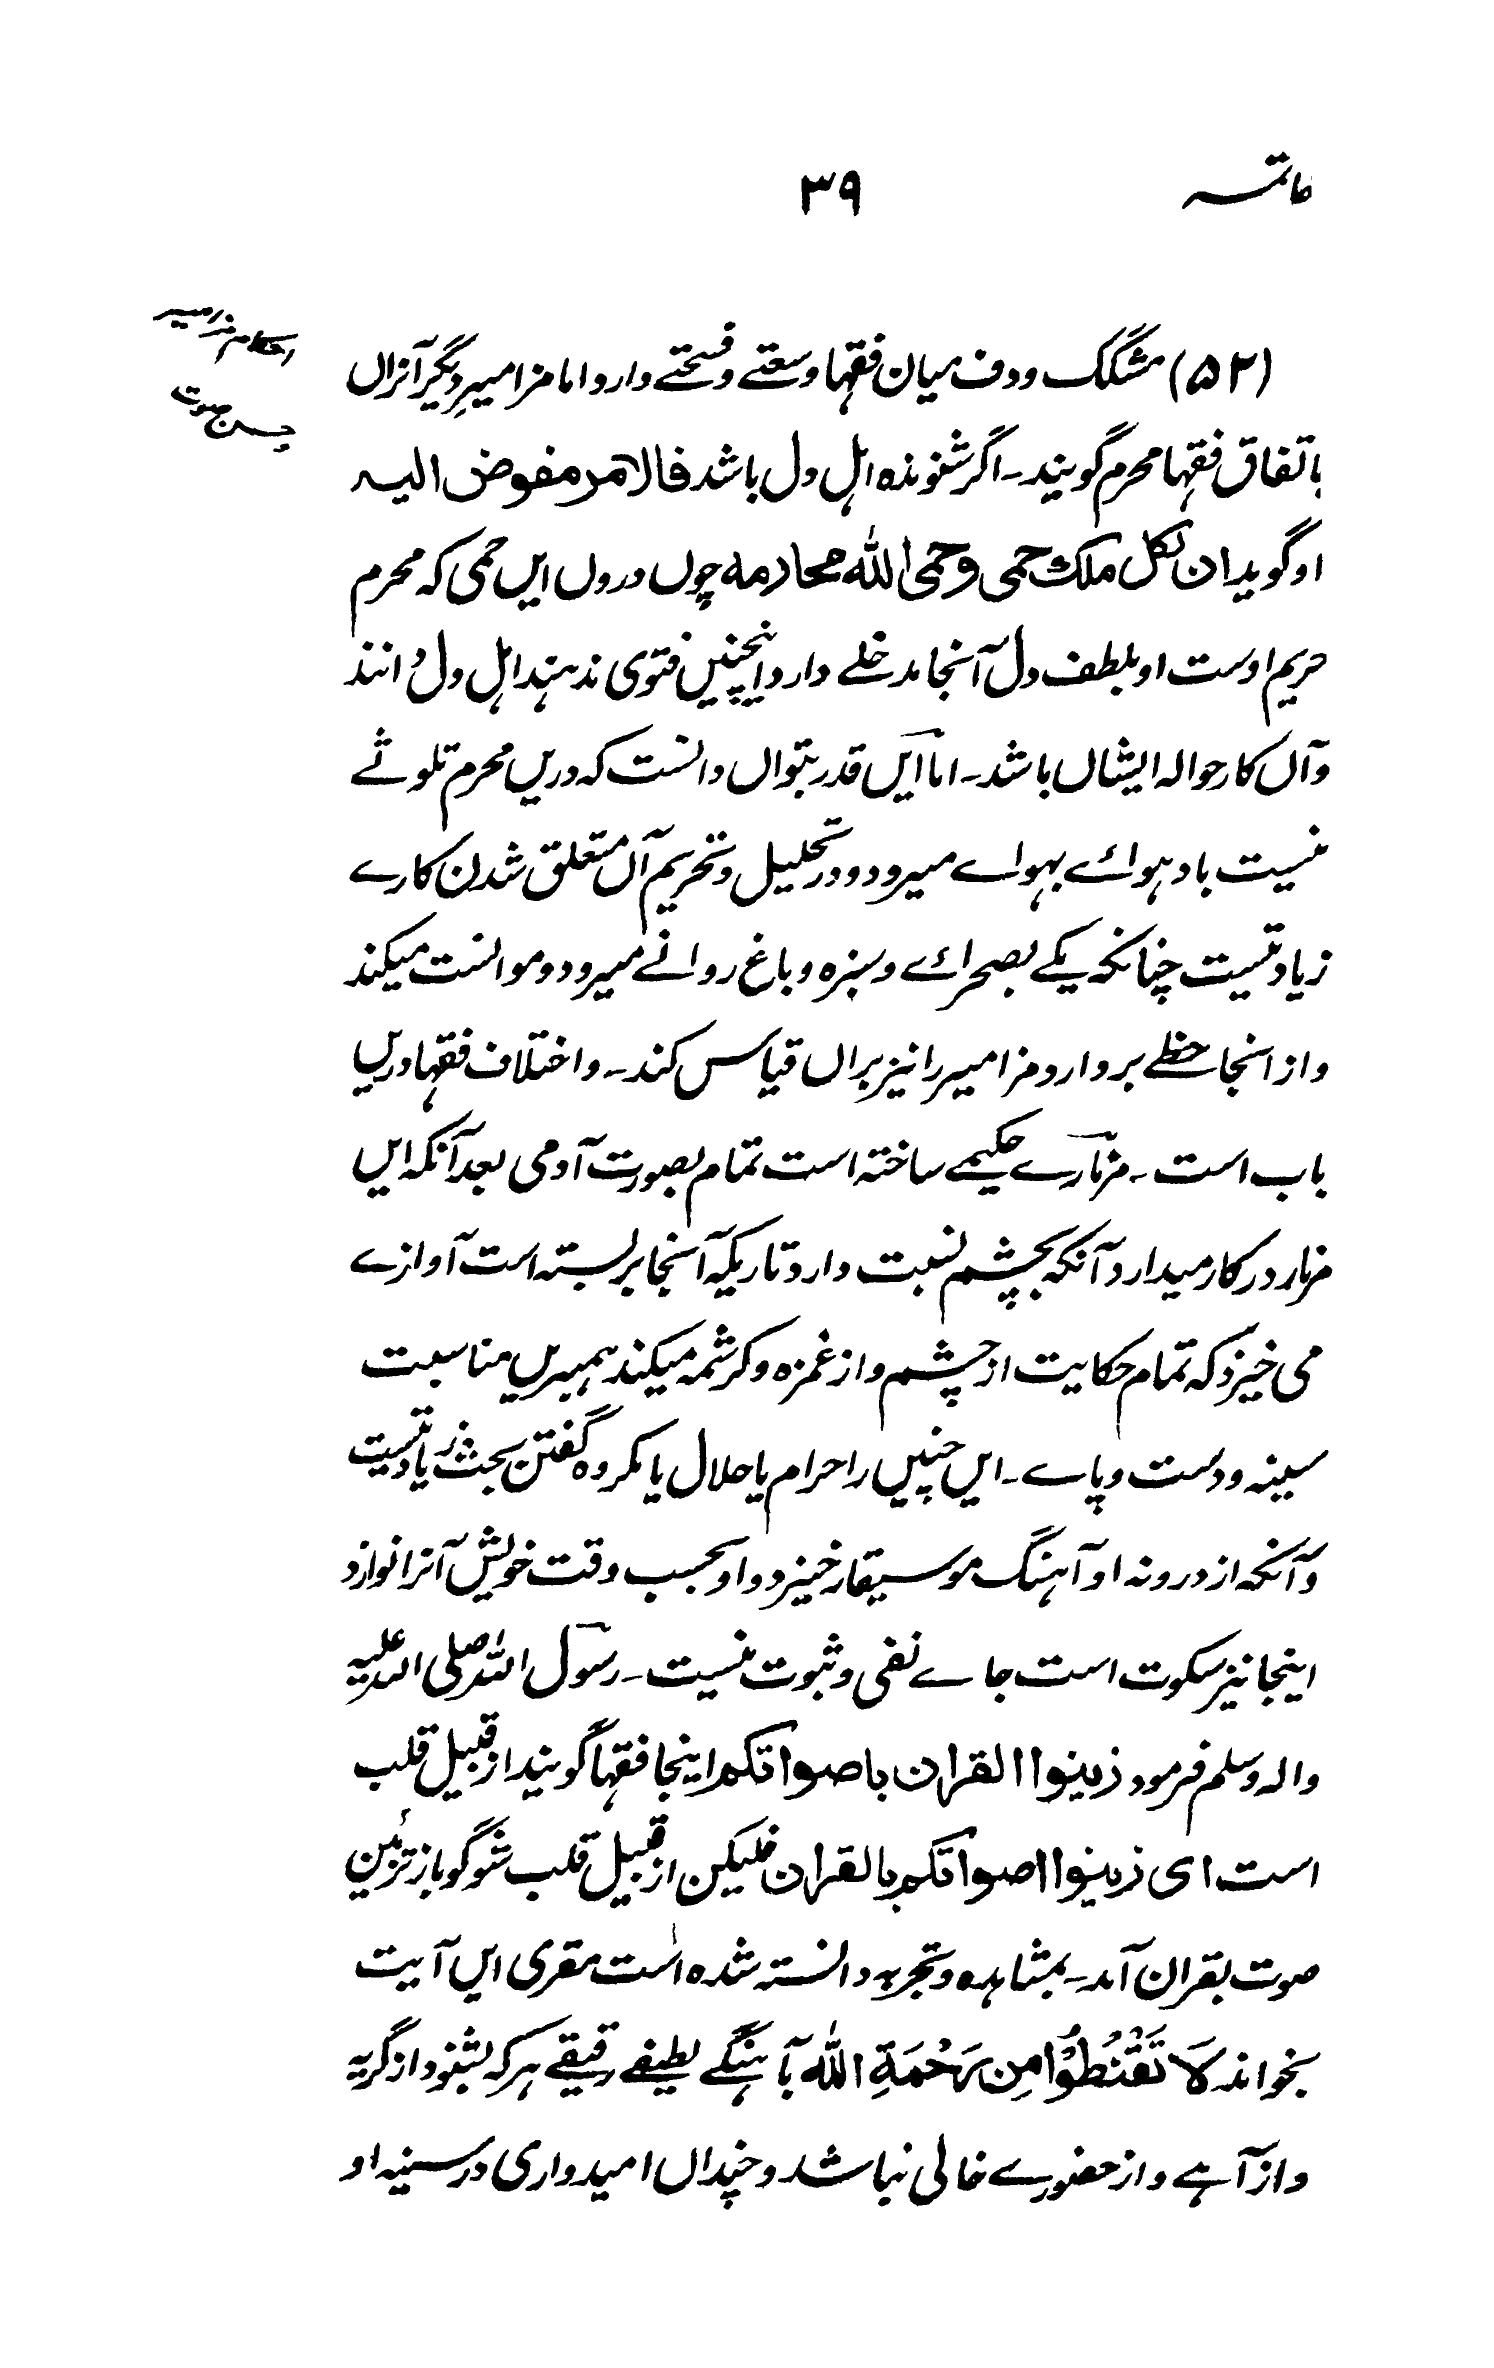 خاتمہ
۳۹
احکام مزامیر
حسن صوت
(۵۲) مشگک ودف میان فقہا وسعتے وفسحتے دارد اما مزامیرِ دیگر آنراں
باتفاق فقہا محرم گویند۔ اگر شنوندہ اہل دل باشد فالامر مفوض الیہ
او گوید ان لکل ملک حمی وحمی الله محارمہ چوں درول ایں حمی کہ محرم
حریم اوست او بلطف دل آنجا مدخلے دارد اینچنیں فتوی ندہند اہل دل دانند
وآں کار حوالہ ایشاں باشد۔ اما ایں قدر بتواں دانست کہ دریں محرم تلوثے
نیست باد ہوائے بہوائے میرود ودر تحلیل وتحریم آں متعلق شدن کارے
زیادتیست چنانکہ یکے بصحرائے وسبزہ وباغ روانے میرود وموانست میکند
واز انجا حظے بردارد مزامیر را نیز براں قیاس کند۔ واختلاف فقہا دریں
باب است۔ مزمارے حکیمے ساختہ است تمام بصورت آدمی بعد آنکہ ایں
مزمار در کار میدارد آنکہ بچشم نسبت دارد تاریکہ آنجا بربستہ است آوازے
می خیزد کہ تمام حکایت از چشم واز غمزہ وکرشمہ میکند ہمبریں مناسبت
سینہ ودست وپاے۔ ایں چنیں را حرام یا حلال یا مکروہ گفتن بحث زیادتیست
وآنکہ از درونہ او آہنگ موسیقار خیزد واو بحسب وقت خویش آنرا نوازد
اینجا نیز سکوت است جاے نفی وثبوت نیست۔ رسول الله صلی الله علیہ
والہ وسلم فرمود زینوا القران باصواتکم اینجا فقہا گویند از قبیل قلب
است ای زینوا اصواتکم بالقران فلیکن از قبیل قلب شو گو باز تزئین
صوت بقران آمد۔ بمشاہدہ وتجربہ دانستہ شدہ است مقری ایں آیت
بخواند لَا تَقْنَطُوْا مِن رَحْمَةِ الله بآہنگے لطیفے رقیقے ہر کہ بشنود از گریہ
واز آہے واز حضورے خالی نباشد وچنداں امیدواری در سینہ او